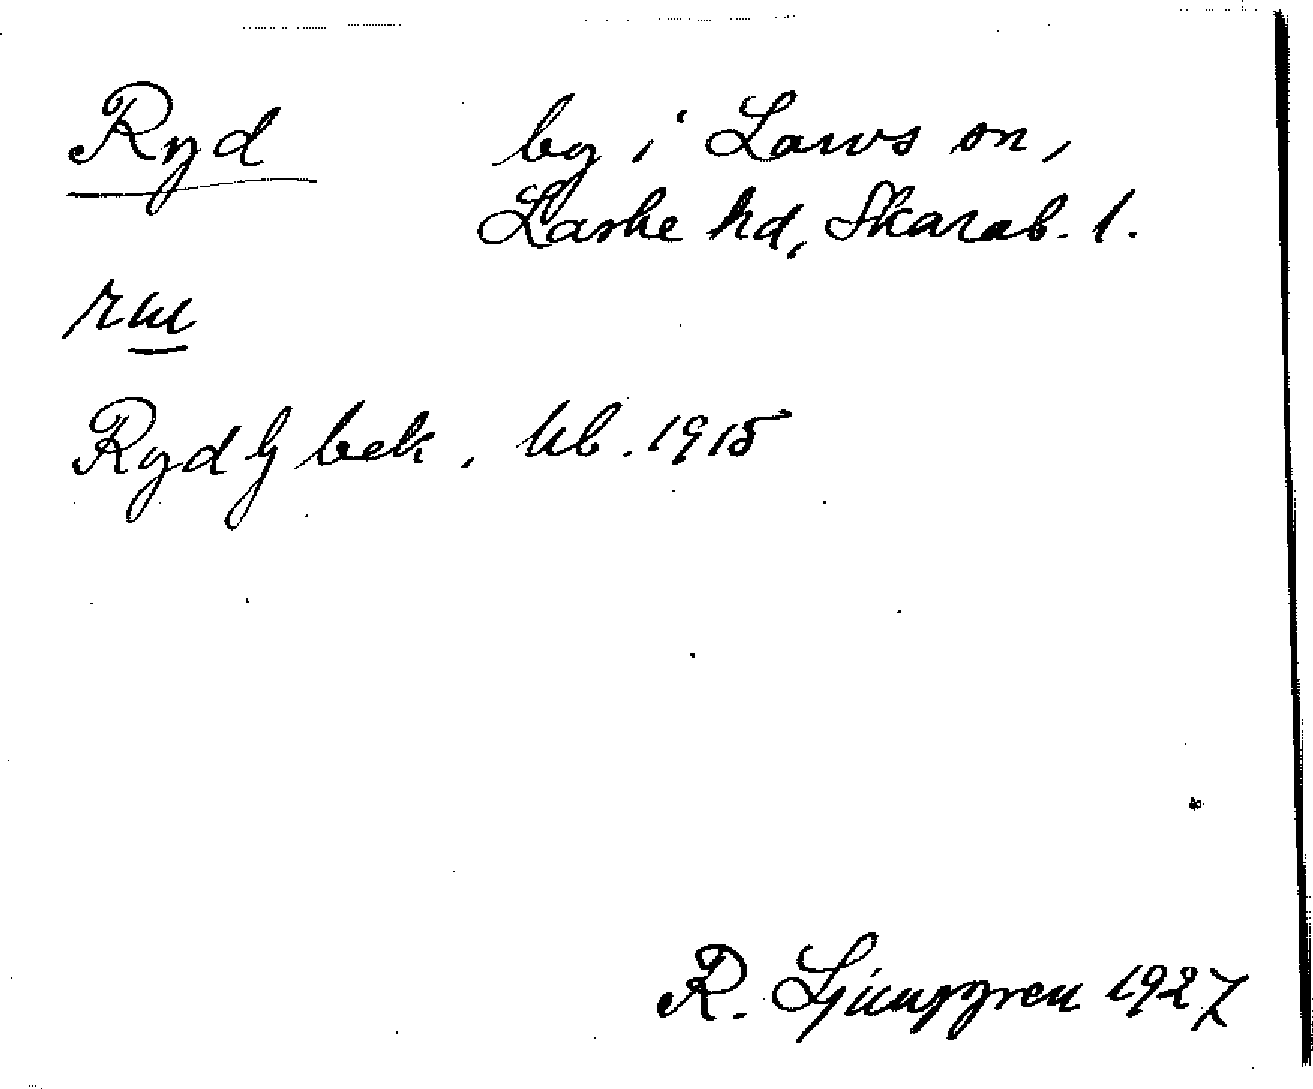 Ryd by i Larvs sn,
Laske hd, Skarab. l.
Ryd G bek. kb. 1915
R. Ljunggren 1927